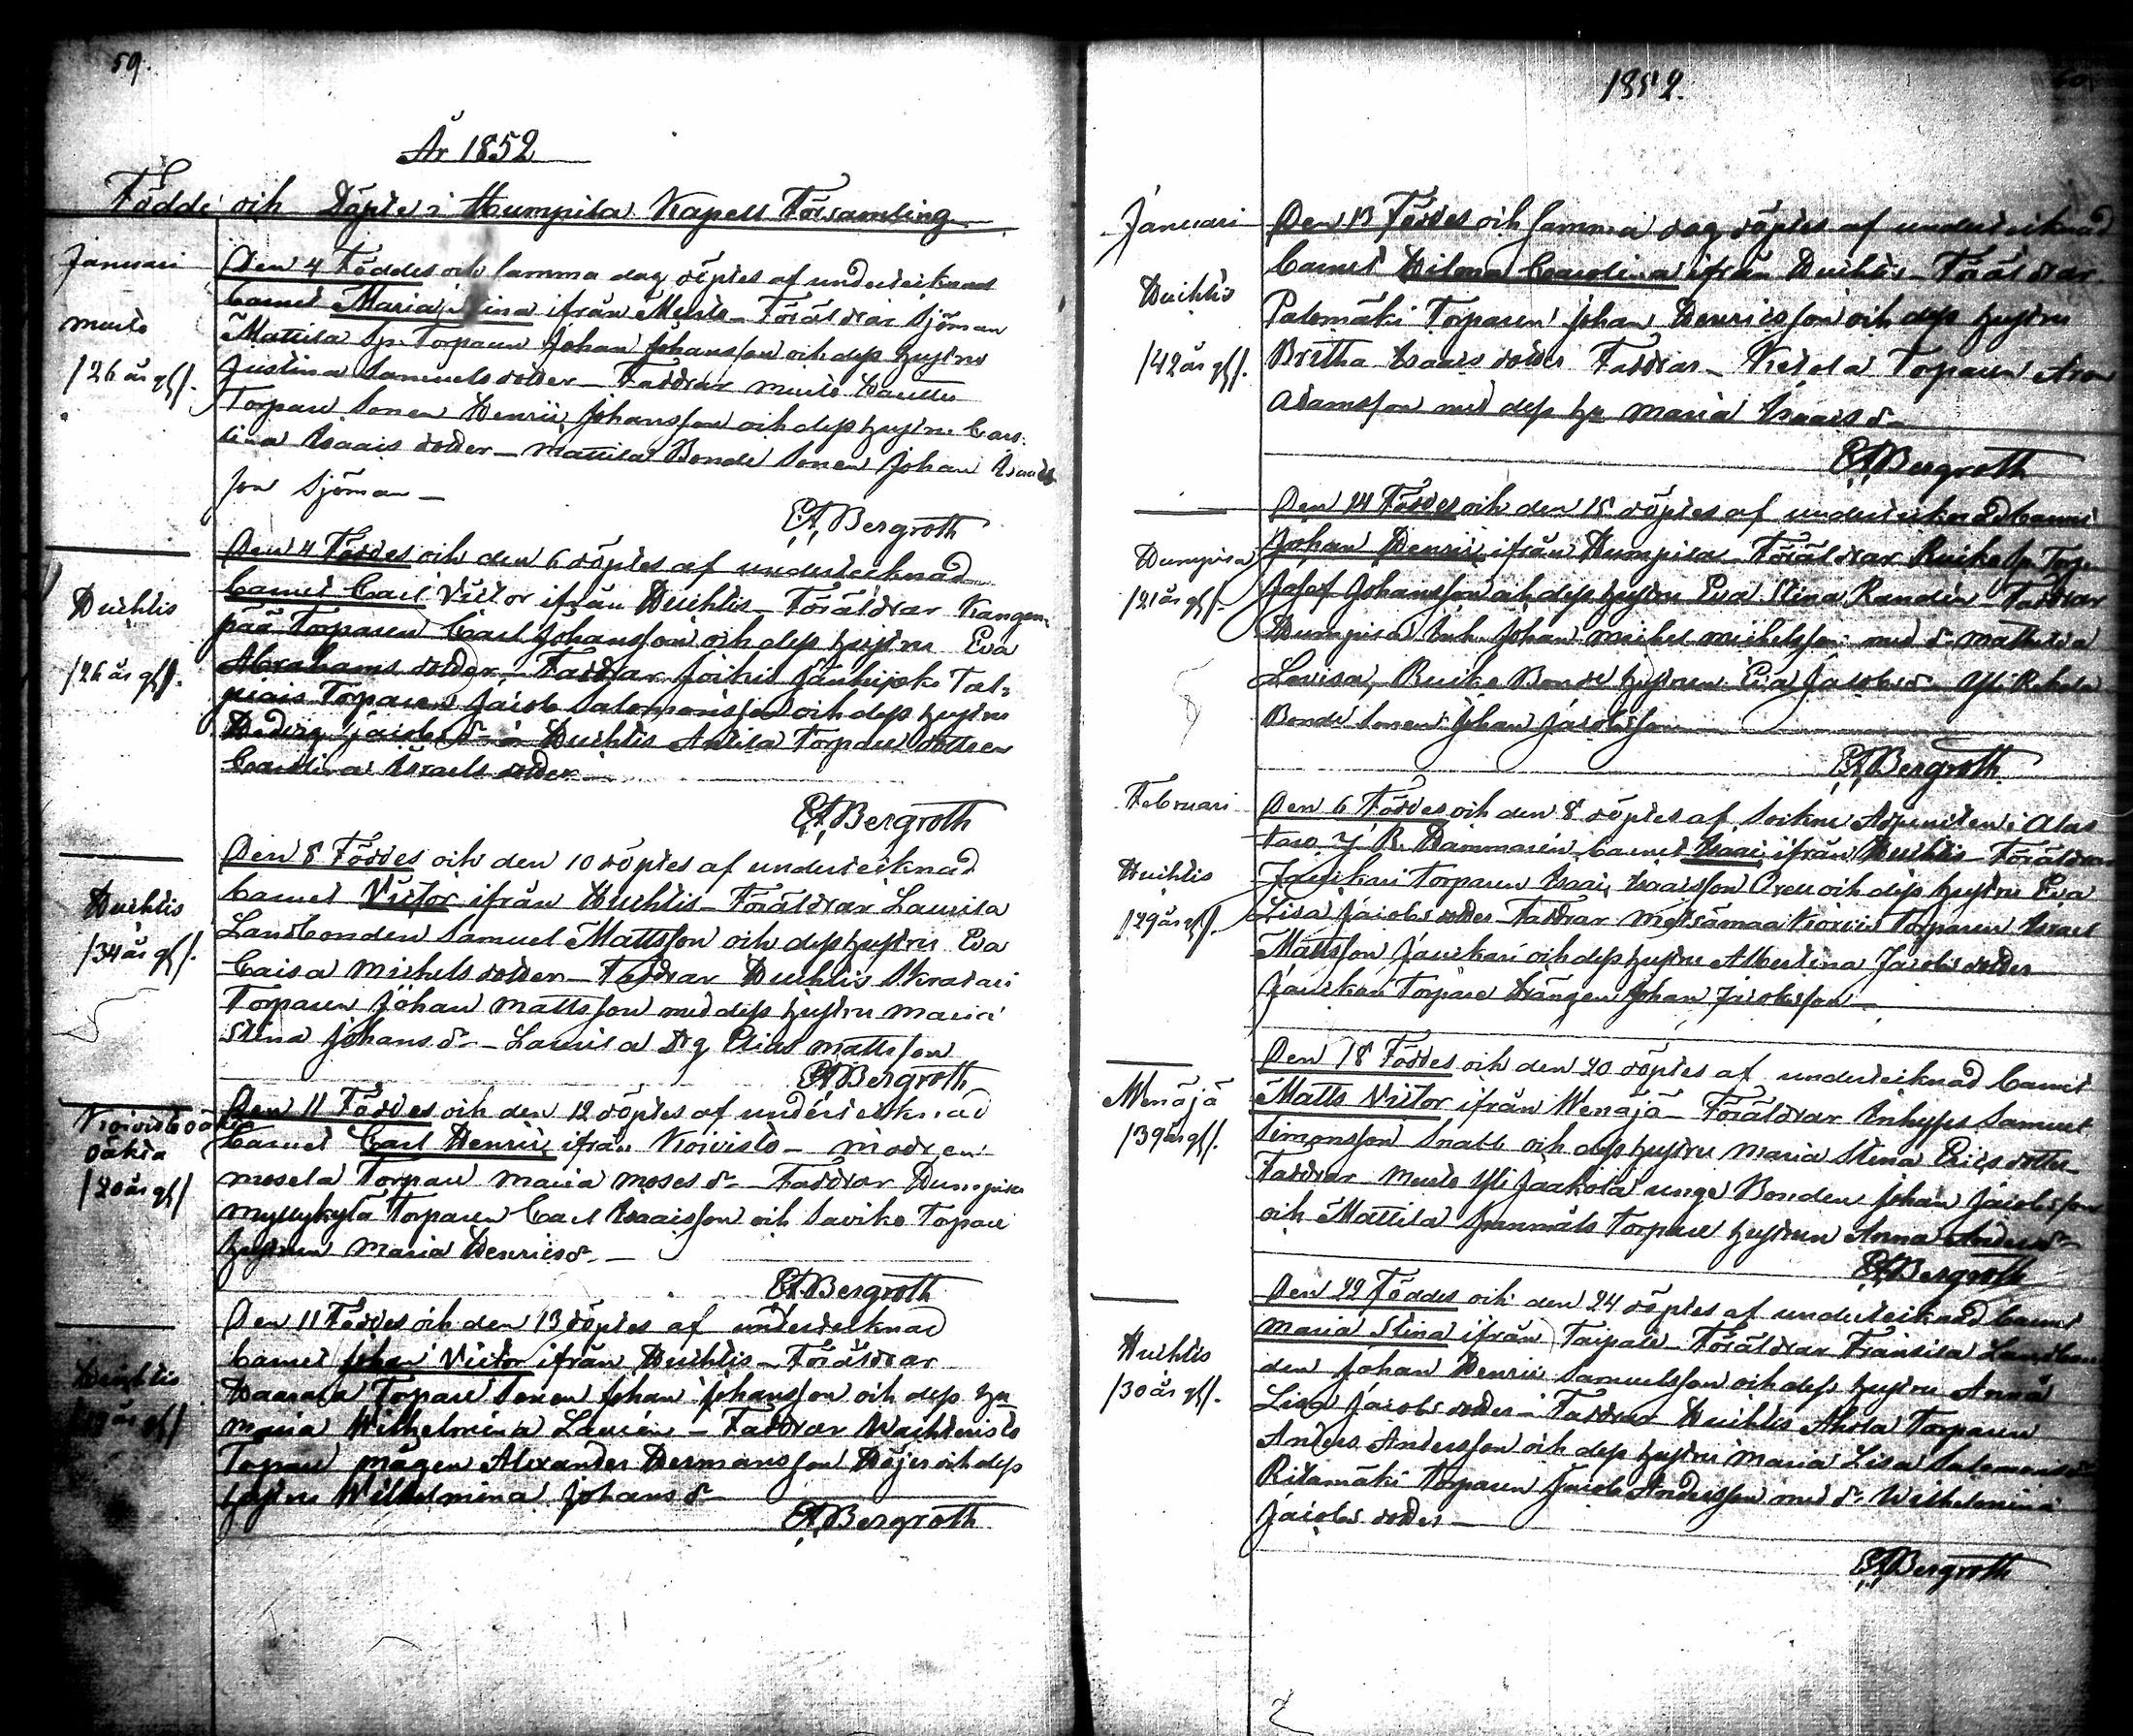 59.
År 1852
Födde och Döpte i Humpila Kapell Församling
Januari
Den 4 Föddes och samma dag döptes af undertecknad
Barnet Maria Stina ifrån Murto – Föräldrar Sjöman
Murto
Mattila Sp. Torparen Johan Johansson och dess hustru
/26 år gl/.
Justina Samuels dotter – Faddrar Murto
Torpare Sonen Henric Johansson och dess hustru Caro-
lina Isaacs dotter – Mattila Bonde Sonen Johan Isaacs
son Sjöman –
EABergroth
Den 4 Föddes och den 6 döptes af undertecknad
Huhtis
Barnet Carl Victor ifrån Huhtis – Föräldrar Kangen-
pää Torparen Carl Johansson och dess hustru Eva
/26 år gl/.
Abrahams dotter – Faddrar Jokis Jänhijoki Tal-
piais Torparen Jacob Salomonsson och dess hustru
Hedvig Jacobs dr – Huhtis Anttila Torpare dottren
Carolina Israels dotter –
EABergroth
Den 8 Föddes och den 10 döptes af undertecknad
Huhtis
Barnet Victor ifrån Huhtis – Föräldrar Laurila
/34 år gl/.
Landbonden Samuel Mattsson och dess hustru Eva
Caisa Michels dotter – Faddrar Huhtis Skratari
Torparen Johan Mattsson med dess hustru Maria
Stina Johans dr – Laurila Drg Elias Mattsson
EABergroth
Koivisto
oäkta
/20 år gl/
Den 11 Föddes och den 12 döptes af undertecknad
Barnet Carl Henric ifrån Koivisto – modren
Mosela Torpare Maria Moses dr – Faddrar Humpila
Myllykylä Torparen Carl Isaacsson och Saviko Torpare
hustrun Maria Henrics dr –
EABergroth
Den 11 Föddes och den 13 döptes af undertecknad
Huhtis
Barnet Johan Victor ifrån Huhtis – Föräldrar
Waarala Torpare Sonen Johan Johansson och dess hu
Maria Wilhelmina Laurén – Faddrar Wachteristo
Torpare mågen Alexander Hermansson Höijer och dess
hustru Wilhelmina Johans dr
EABergroth
1852.
60.
Januari
Den 13 Föddes och samma dag döptes af undertecknad
Huhtis
Barnet Hilena Carolina ifrån Huhtis – Föräldrar
Palomäki Torparen Johan Henricsson och dess hustru
/42 år gl/.
Britha Isaacs dotter Faddrar – Ketola Torparen Aron
Adamsson med dess hu Maria Isaacs dr –
EABergroth
Den 14 Föddes och den 15 döptes af undertecknad barnet
Humpila
Johan Henric ifrån Humpila – Föräldrar Ruike Sp. Torp.
/21 år gl/.
Josef Johansson och dess hustru Eva Stina Randén – Faddrar
Humpila Inh. Johan Michel Michelsson med dr Mathilda
Lovisa, Ruike Bonde hustrun Eva Jacobs dr Yli Rekola
Bonde Sonen Johan Jacobsson
EABergroth
Februari
Den 6 Föddes och den 8 döptes af Sockne Adjuncten i Alas
taro J. R. Hammarén barnet Isaac ifrån Huhtis – Föräldrar
Huhtis
Jauckari Torparen Isaac Isaacsson Oreu och dess hustru Eva
/29 år gl/.
Lisa Jacobs dotter – Faddrar Metsämaa Torparen Israel
Mattsson Jauckari och dess hustru Albertina Jacobs dotter
Jauckari Torpare Drängen Johan Jacobsson –
Den 18 Föddes och den 20 döptes af undertecknad barnet
Wenäjä
Matts Victor ifrån Wenäjä – Föräldrar Inhyses Samuel
/39 år gl/.
Simonsson Snabb och dess hustru Maria Stina Erics dotter –
Faddrar Murto Yli Jaakola unge Bonden Johan Jacobsson
och Mattila Torpare hustrun Anna Anders dr
EABergroth
Den 22 Föddes och den 24 döptes af undertecknad barnet
Maria Stina ifrån Taipale – Föräldrar Fransila Landbon
Huhtis
den Johan Henric Samuelsson och dess hustru Anna
/30 år gl/.
Lisa Jacobs dotter – Faddrar Huhtis Ahola Torparen
Anders Andersson och dess hustru Maria Lisa Salomons dr
Ritamäki Torparen Jacob Andersson med dr Wilhelmina
Jacobs dotter –
EABergroth